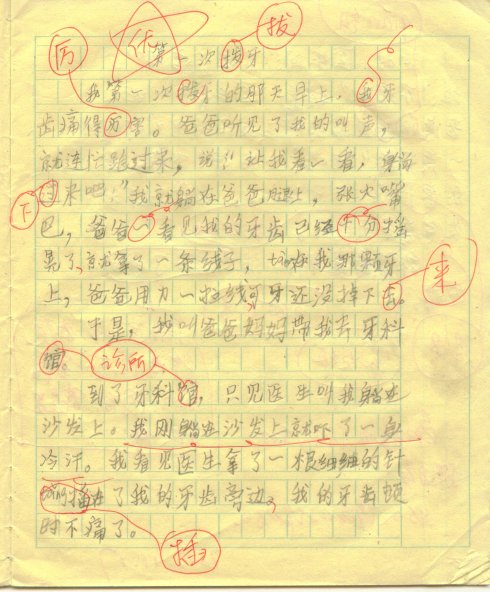 厉 优 拔
第一次拨牙
我第一次拨牙的那天早上，我牙
齿痛得历害。爸爸听见了我的叫声，
就连忙跑过来，说："让我看一看，躺
下 过来吧，"我就躺在爸爸腿上，张大嘴
巴，爸爸一看见我的牙齿已经十分摇
晃了，就拿了一条线子，绑在我那颗牙
上，爸爸用力一拉线，可牙还没掉下去。 来
于是，我叫爸爸妈妈带我去牙科
馆。 诊所
到了牙科馆，只见医生叫我躺在
沙发上。我刚躺在沙发上就吓了一身
冷汗。我看见医生拿了一根细细的针
播在了我的牙齿旁边，我的牙齿顿
时不痛了。
插